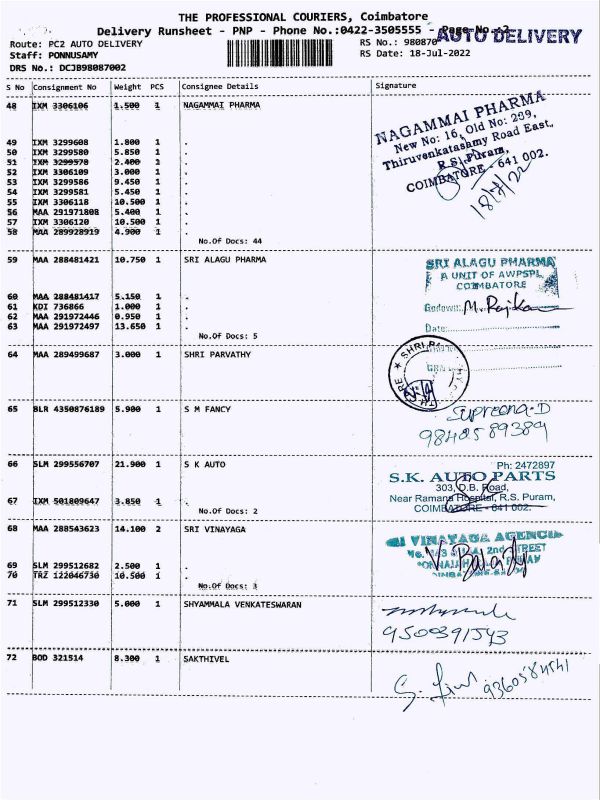 THE PROFESSIONAL COURIERS, Coimbatore
Delivery Runsheet - PNP - Phone No.:0422-3505555 - Page No. 3
AUTO DELIVERY
Route: PC2 AUTO DELIVERY
RS No.: 980870
Staff: PONNUSAMY
RS Date: 18-Jul-2022
DRS No.: DCJB98087002
S No Consignment No Weight PCS Consignee Details Signature
48 IXM 3306106 1.500 1 NAGAMMAI PHARMA
49 IXM 3299608 1.800 1 .
50 IXM 3299580 5.850 1 .
51 IXM 3299578 2.400 1 .
52 IXM 3306109 3.000 1 .
53 IXM 3299586 9.450 1 .
54 IXM 3299581 5.450 1 .
55 IXM 3306118 10.500 1 .
56 MAA 291971808 5.400 1 .
57 IXM 3306120 10.500 1 .
58 MAA 289928919 4.900 1 .
No.Of Docs: 44
NAGAMMAI PHARMA
New No: 16, Old No: 209,
Thiruvenkatasamy Road East,
R.S. Puram,
COIMBATORE - 641 002.
18/7/22
59 MAA 288481421 10.750 1 SRI ALAGU PHARMA
60 MAA 288481417 5.150 1 .
61 KDI 736866 1.000 1 .
62 MAA 291972446 0.950 1 .
63 MAA 291972497 13.650 1 .
No.Of Docs: 5
SRI ALAGU PHARMA
A UNIT OF AWPSPL
COIMBATORE
Godown:
Date:
64 MAA 289499687 3.000 1 SHRI PARVATHY
65 BLR 4350876189 5.900 1 S M FANCY
Supreena.D
9842589389
66 SLM 299556707 21.900 1 S K AUTO
67 IXM 501809647 3.850 1 .
No.Of Docs: 2
Ph: 2472897
S.K. AUTO PARTS
303, D.B. Road,
Near Ramana Hospital, R.S. Puram,
COIMBATORE - 641 002.
68 MAA 288543623 14.100 2 SRI VINAYAGA
69 SLM 299512682 2.500 1 .
70 TRZ 122046730 10.500 1 .
No.Of Docs: 3
VINAYAGA AGENCIE
2nd STREET
71 SLM 299512330 5.000 1 SHYAMMALA VENKATESWARAN
9500391543
72 BOD 321514 8.300 1 SAKTHIVEL